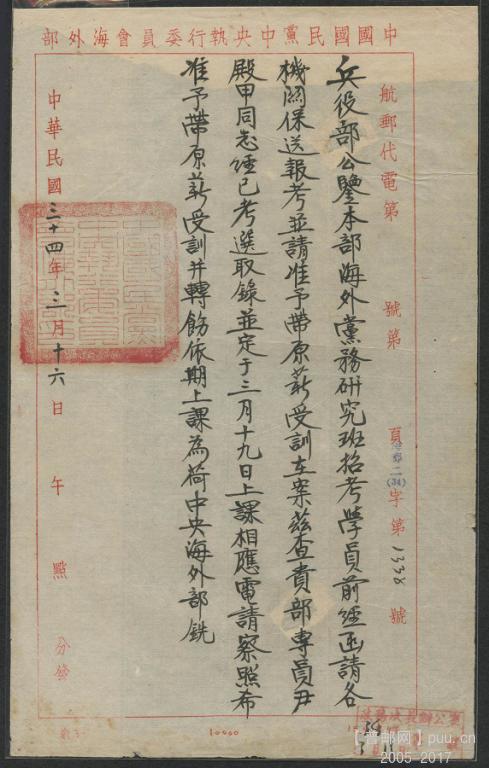 中國國民黨中央執行委員會海外部
航郵代電第　號第　頁　二(34)字第1338號
兵役部公鑒本部海外黨務研究班招考學員前經函請各
機關保送報考並請准予帶原薪受訓在案茲查貴部專員尹
殿甲同志經已考選取錄並定于三月十九日上課相應電請察照希
准予帶原薪受訓并轉飭依期上課為荷中央海外部銑
中華民國三十四年三月十六日　午　點　分發
10000
【普邮网】puu.cn
2005-2017